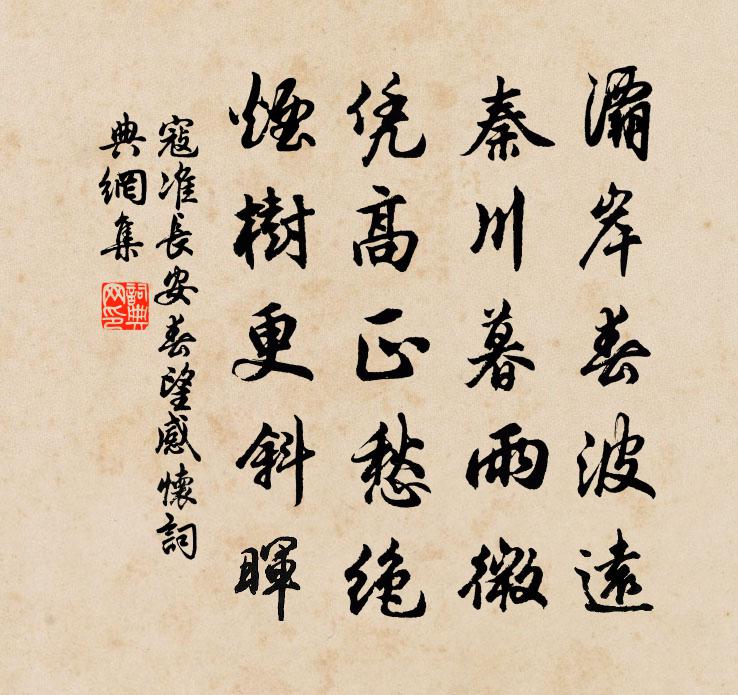 灞岸春波遠
秦川暮雨微
凭高正愁絶
煙樹更斜暉
寇准長安春望感懷詞
典網集
詞典
网印